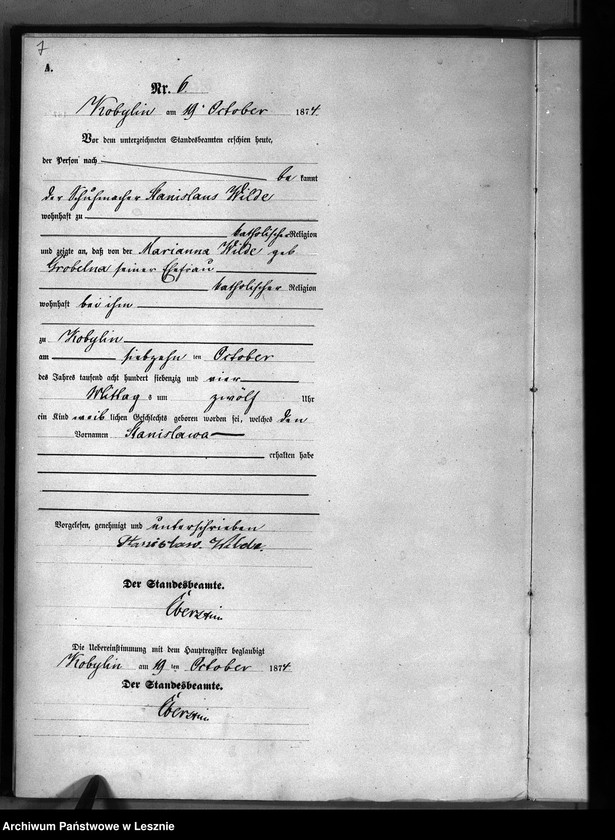 7
A.
Nr. 6.
Kobylin am 19. October 1874.
Vor dem unterzeichneten Standesbeamten erschien heute,
der Person nach
be kannt
der Schuhmacher Stanislaus Wilde
wohnhaft zu
katholischer Religion
und zeigte an, daß von der Marianna Wilde geb
Grobelna seiner Ehefrau
katholischer Religion
wohnhaft bei ihm
zu Kobylin
am siebzehn ten October
des Jahres tausend acht hundert siebenzig und vier
Mittag s um zwölf Uhr
ein Kind weib lichen Geschlechts geboren worden sei, welches den
Vornamen Stanislawa
erhalten habe
Vorgelesen, genehmigt und unterschrieben
Stanislaw. Wilde.
Der Standesbeamte.
Die Uebereinstimmung mit dem Hauptregister beglaubigt
Kobylin am 19 ten October 1874
Der Standesbeamte.
Archiwum Państwowe w Lesznie